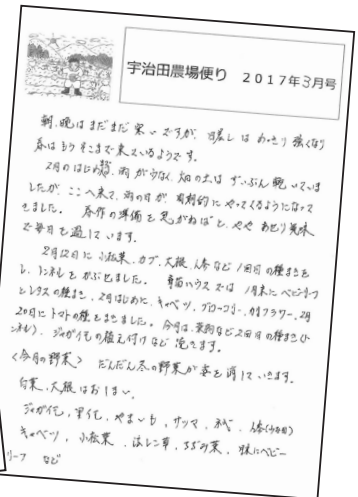 宇治田農場便り 2017年3月号
朝、晩はまだまだ寒いですが、日差しはめっきり強くなり
春はもうそこまで来ているようです。
2月のはじめ頃、雨が少なく、畑の土はずいぶん乾いていま
したが、ここへ来て、雨の日が、周期的にやってくるようになって
きました。春作の準備を急がねばと、ややあせり気味
で毎日を過しています。
2月12日に小松菜、カブ、大根、人参など1回目の種まきを
し、トンネルをかぶせました。育苗ハウスでは1月末にベビーリーフ
とレタスの種まき、2月はじめに、キャベツ、ブロッコリー、カリフラワー、2月
20日にトマトの種をまきました。今月は、葉物など2回目の種まき(ト
ンネル)、ジャガイモの植え付けなど続きます。
<今月の野菜> だんだん冬の野菜が姿を消していきます。
白菜、大根はおしまい。
ジャガイモ、里イモ、やまいも、サツマ、ネギ、人参(少な目)
キャベツ、小松菜、ほうレン草、ちぢみ菜、
リーフ など